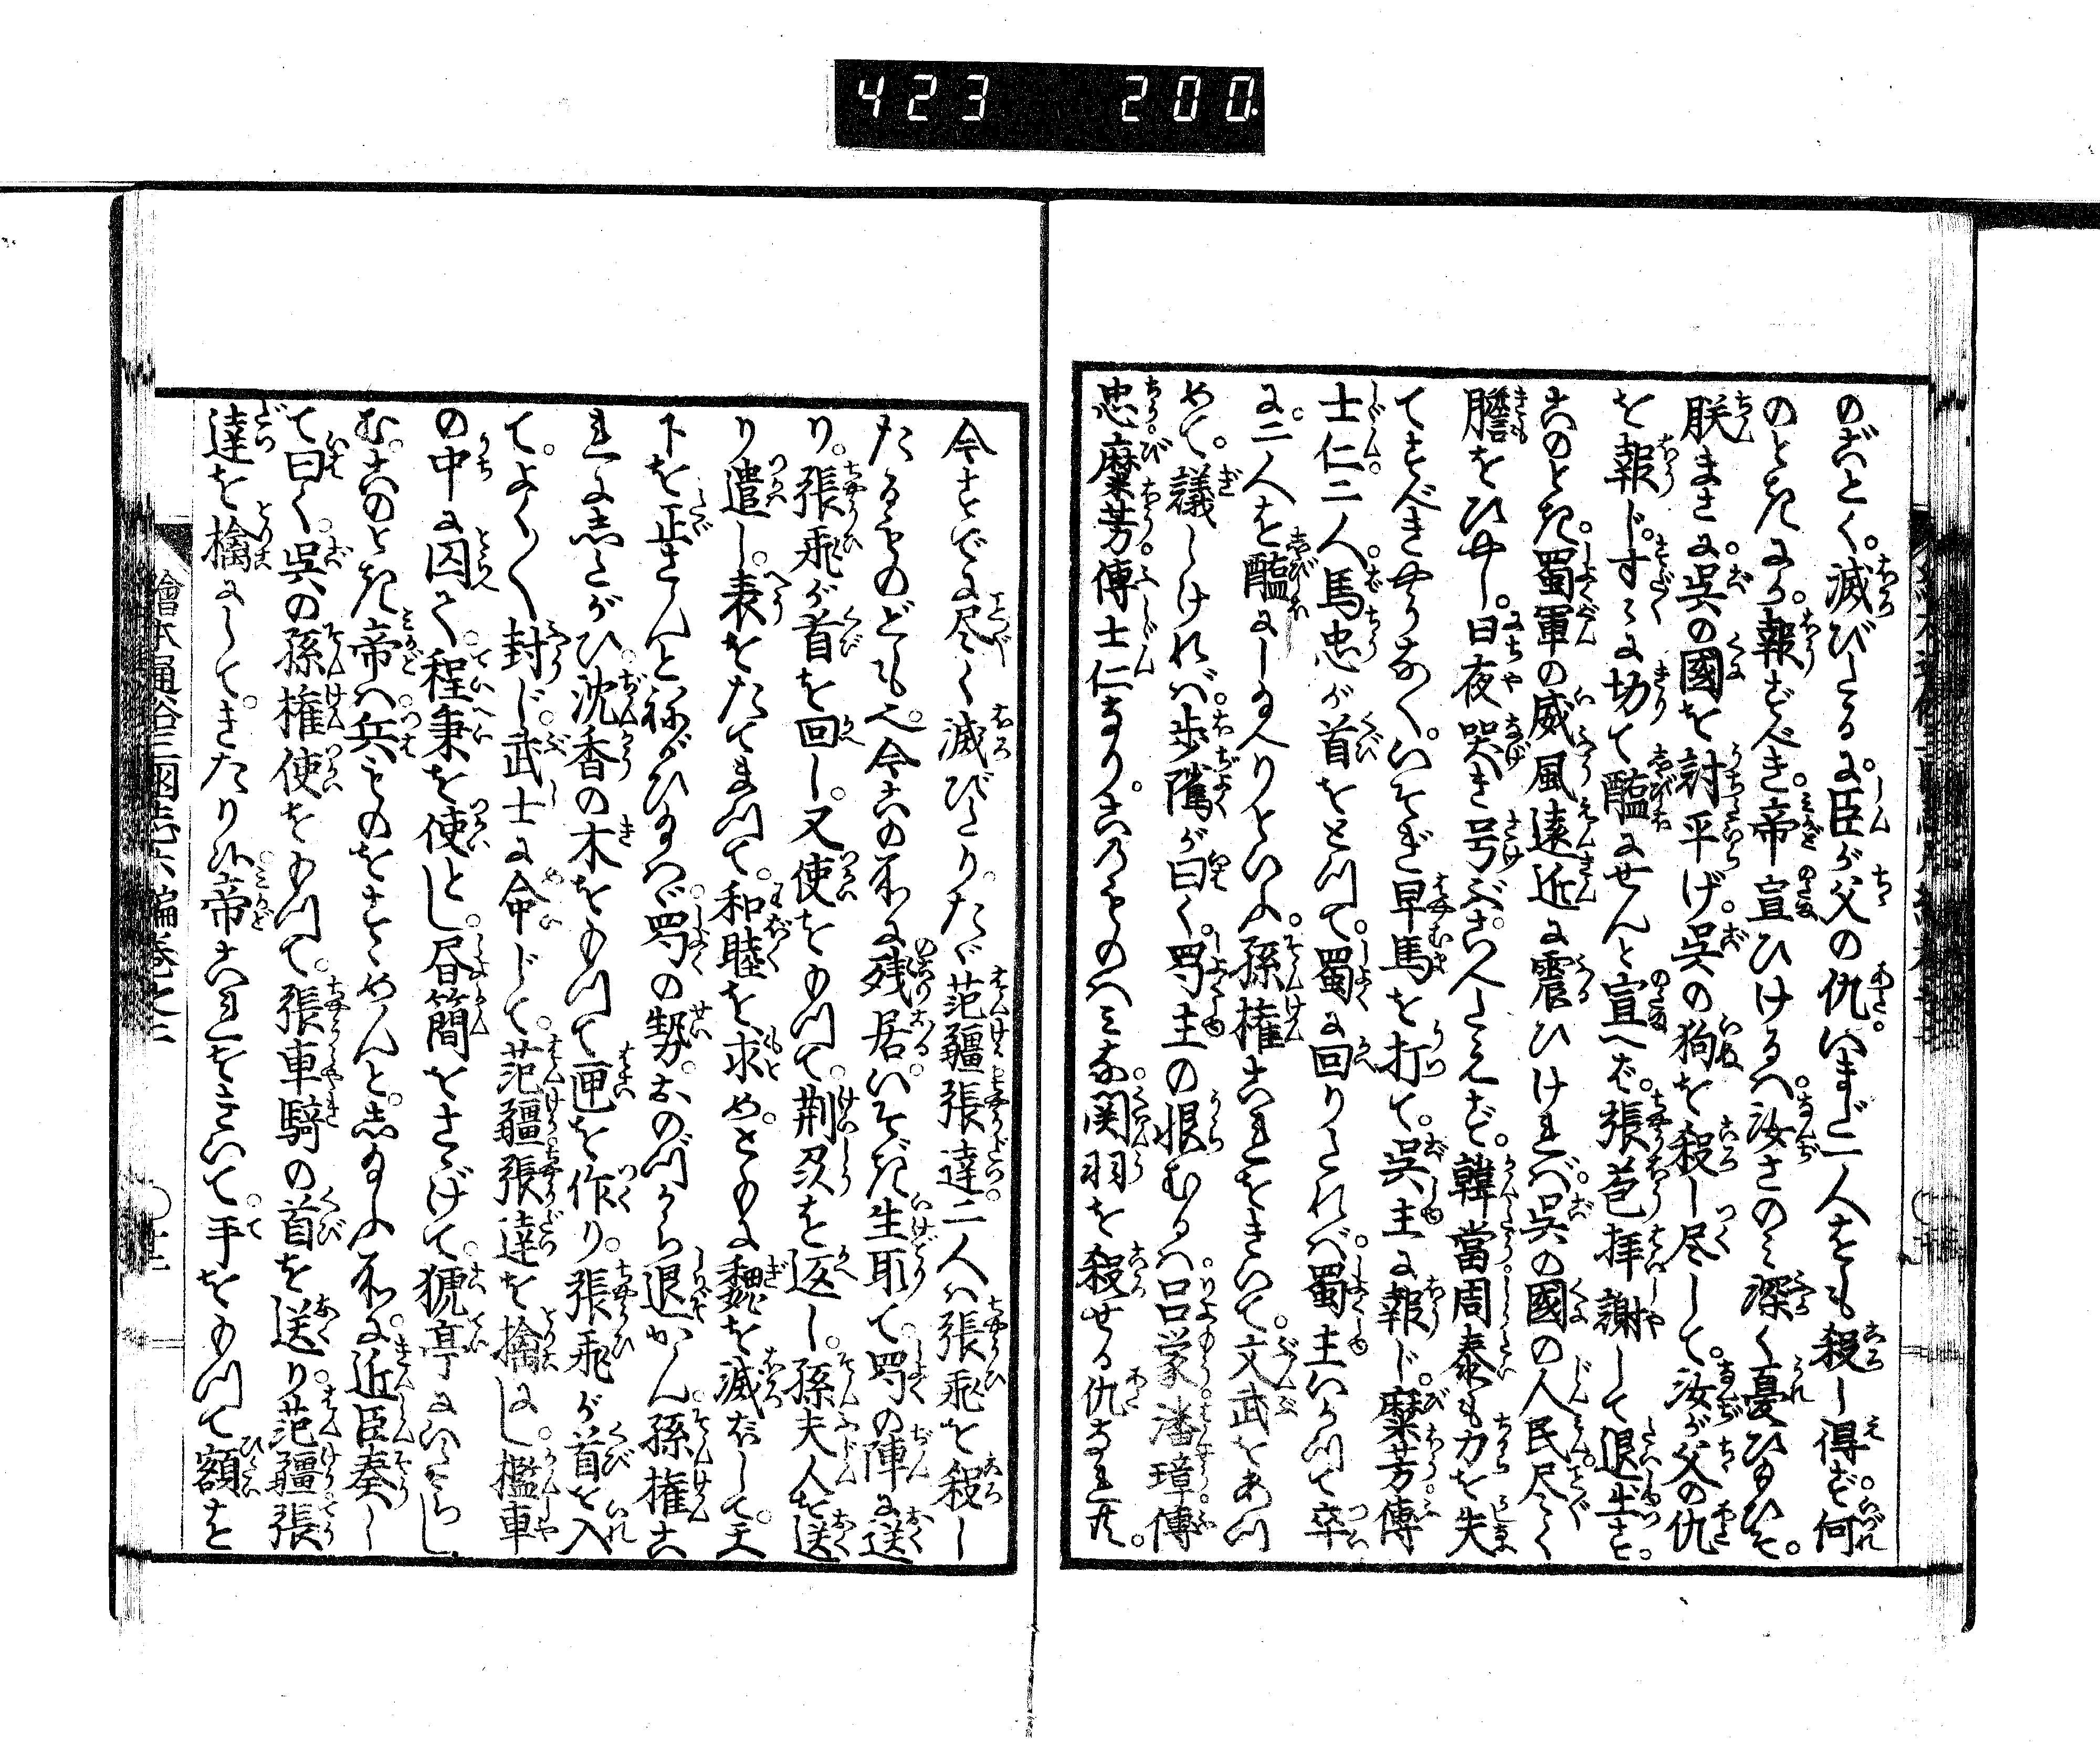 423 200.
のごとく。滅びたるに。臣が父の仇。いまだ一人をも殺し得ず。何
のときにか。報ずべき。帝宣ひけるハ。汝さのミ深く憂ひ給ひそ。
朕まさに。呉の國を討平げ。呉の狗を殺し尽して。汝が父の仇
を報じ。すミに切て醢にせんと宣へバ。張苞拝謝して退出す。
このとき。蜀軍の威風遠近に震ひけれバ。呉の國の人民尽く
膽をひやし。日夜哭き号ぶこゑたえず。韓當周泰も力を失
てすべきやうなく。いそぎ早馬を打て。呉主に報じ。糜芳傅
士仁二人。馬忠が首をとつて。蜀に回りたれバ。蜀主いかつて卒
に。二人を醢にし給へりといふ。孫権これをきいて。文武をあつ
めて。議しけれバ。歩隲が曰く。蜀主の恨むるハ。呂蒙潘璋傅
忠糜芳傅士仁なり。このものハミな。関羽を殺せる仇なれ共。
今すでに尽く滅びたり。たゞ范疆張達二人ハ張飛を殺し
たるものどもへ。今この所に残居。いそぎ生取て。蜀の陣に送
り。張飛が首を回し。又使をもつて。荊州を返し。孫夫人を送
り遣し。表をたてまつて。和睦を求め。ともに魏を滅ぼして。天
下を正さんと祢がひ給ハゞ。蜀の勢。おのづから退かん。孫権こ
れにしたがひ。沈香の木をもつて匣を作り。張飛が首を入
て。よく〱封じ。武士に命じて。范疆張達を擒にし。檻車
の中に囚て。程秉を使とし。書簡をさゝげて。猇亭にいたらし
む。このとき帝ハ。兵ものをすゝめんと。し給ふ所に。近臣奏し
て曰く。呉の孫権使をもつて。張車騎の首を送り。范疆張
達を擒にして。きたり候。帝これをきいて。手をもつて額を
繪本通俗三國志六編巻之三